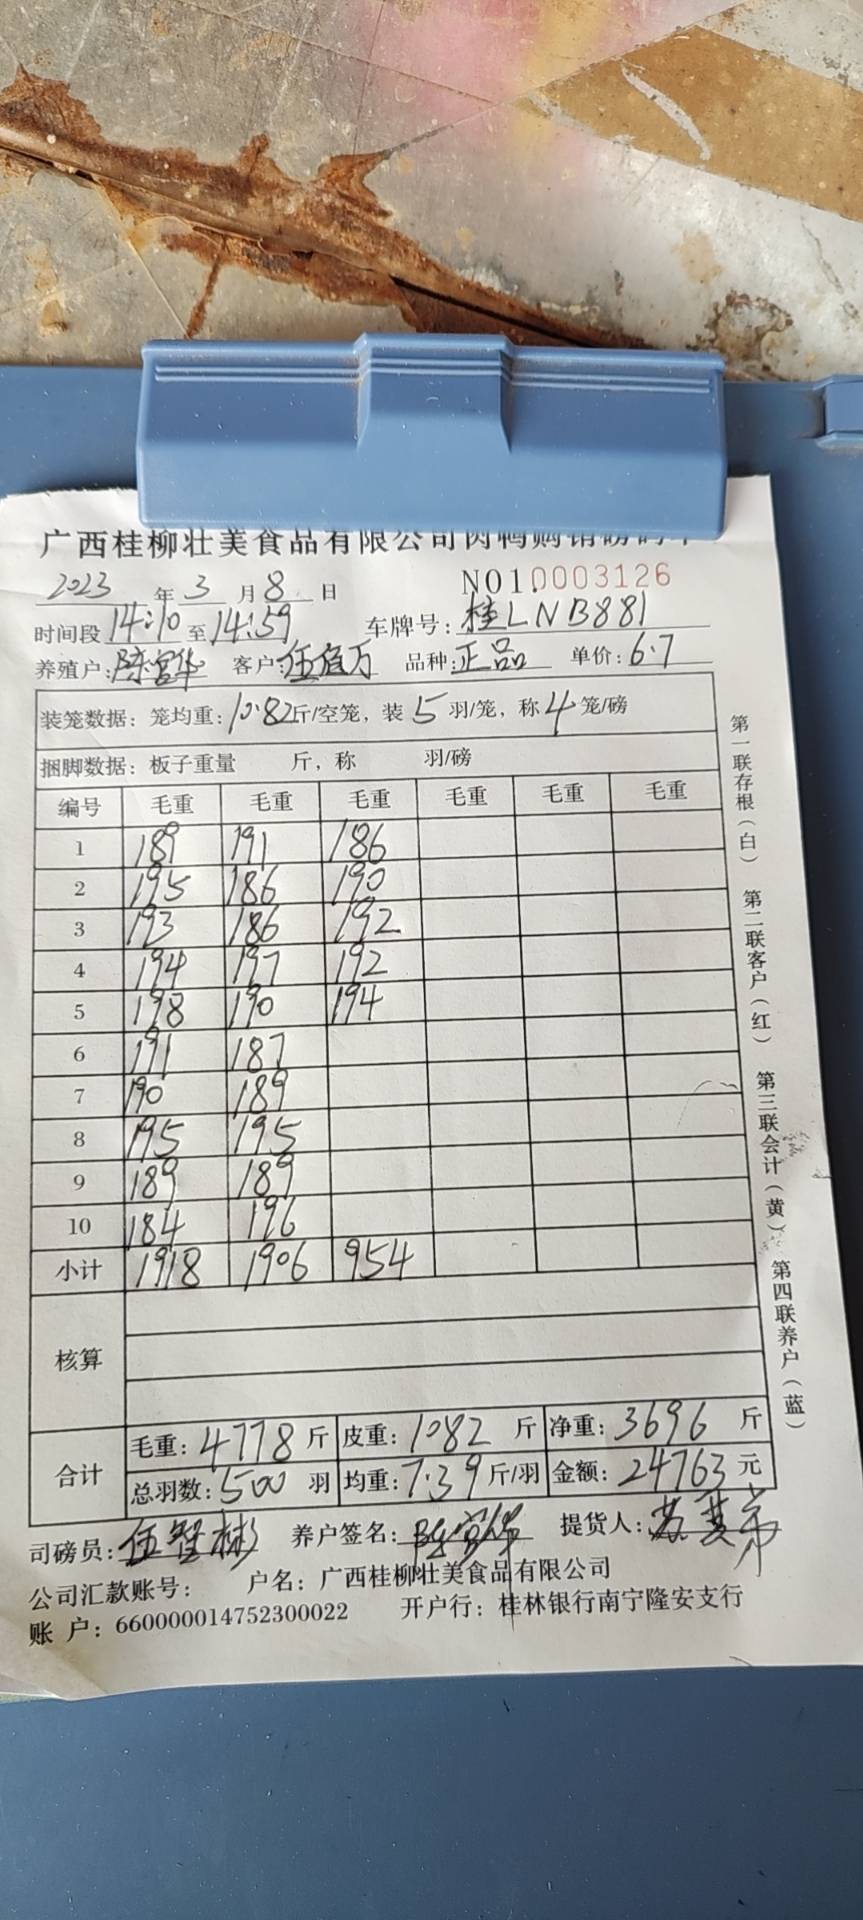 广西桂柳壮美食品有限公司肉鸭购销磅码单
2023 年 3 月 8 日 NO1.0003126
时间段 14:10 至 14:59 车牌号: 桂LNB881
养殖户: 陈宫华 客户: 伍佰万 品种: 正品 单价: 6.7
装笼数据: 笼均重: 10.82 斤/空笼, 装 5 羽/笼, 称 4 笼/磅
捆脚数据: 板子重量 斤, 称 羽/磅
编号 毛重 毛重 毛重 毛重 毛重 毛重
1 189 191 186
2 195 186 190
3 193 186 192
4 194 197 192
5 198 190 194
6 191 187
7 190 189
8 195 195
9 189 189
10 184 196
小计 1918 1906 954
核算
合计
毛重: 4778 斤 皮重: 1082 斤 净重: 3696 斤
总羽数: 500 羽 均重: 7.39 斤/羽 金额: 24763 元
司磅员: 伍智彬 养户签名: 提货人:
公司汇款账号: 户名: 广西桂柳壮美食品有限公司
账 户: 660000014752300022 开户行: 桂林银行南宁隆安支行
第一联存根(白) 第二联客户(红) 第三联会计(黄) 第四联养户(蓝)